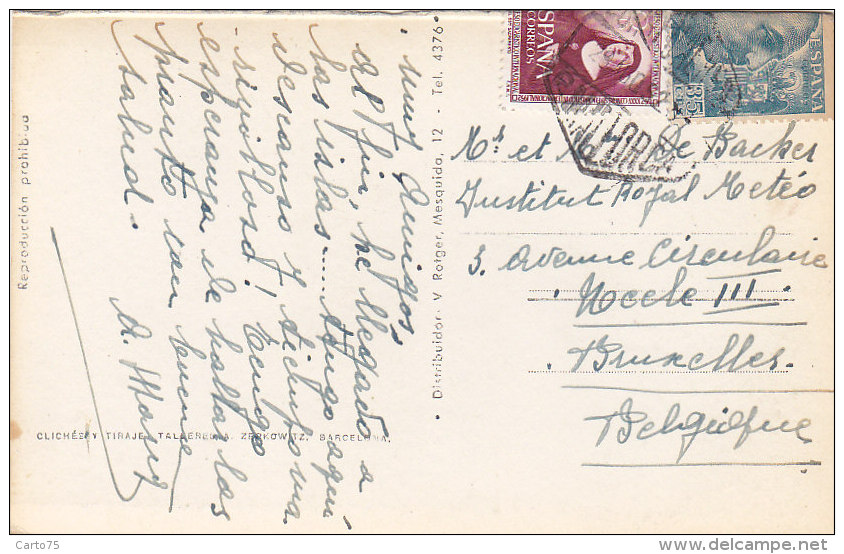 muy Amigos
al fin, he llegado a
las islas..... tengo aquí
descanso y tiempo ma-
ravilloso! Tengo
esperanza de hallarlas
pronto con buena
salud.
Reproducción prohibida
CLICHÉS Y TIRAJE, TALLERES A. ZERKOWITZ, BARCELONA.
• Distribuidor: V. Rotger, Mesquida, 12 - Tel. 4376 •
ESPAÑA
CORREOS
ESPAÑA
35
CTS
MALLORCA
Mr et Me De Backer
Institut Royal Météo
3. Avenue Circulaire
Uccle III
Bruxelles.
Belgique
Carto75
www.delcampe.net